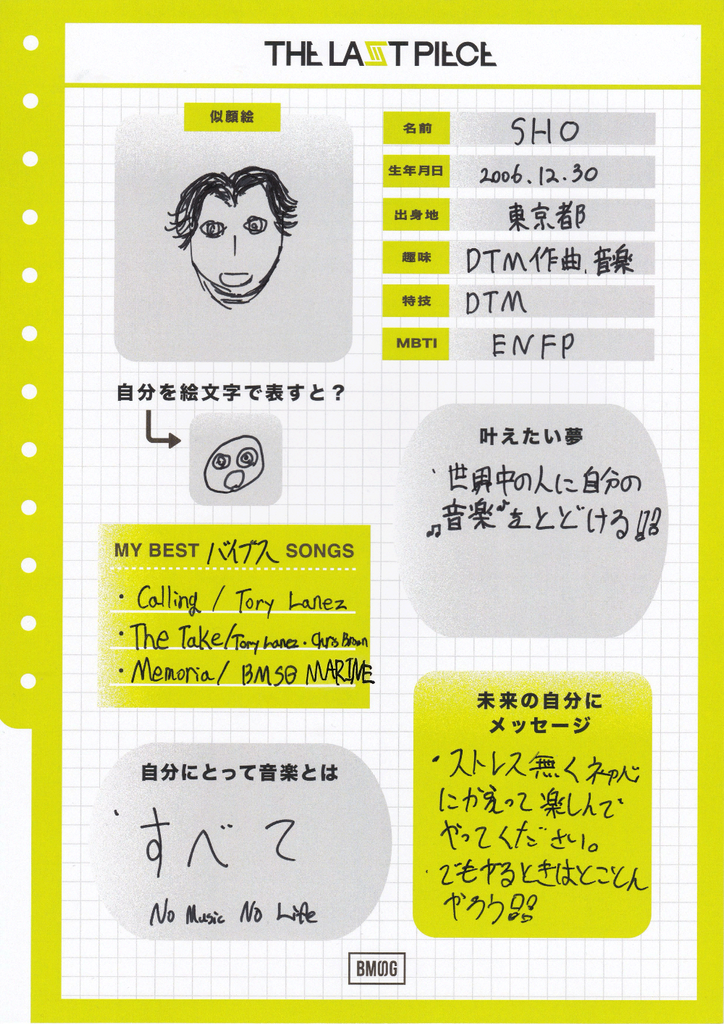 THE LAST PIECE
似顔絵
名前 SHO
生年月日 2006.12.30
出身地 東京都
趣味 DTM作曲、音楽
特技 DTM
MBTI ENFP
自分を絵文字で表すと？
叶えたい夢
世界中の人に自分の
♫音楽♪をとどける!!
MY BEST バイブス SONGS
・Calling / Tory Lanez
・The Take/Tory Lanez・Chris Brown
・Memoria/ BMSG MARINE
未来の自分に
メッセージ
・ストレス無く初心
にかえって楽しんで
やってください。
・でもやるときはとことん
やろう!!
自分にとって音楽とは
すべて
No Music No Life
BMSG